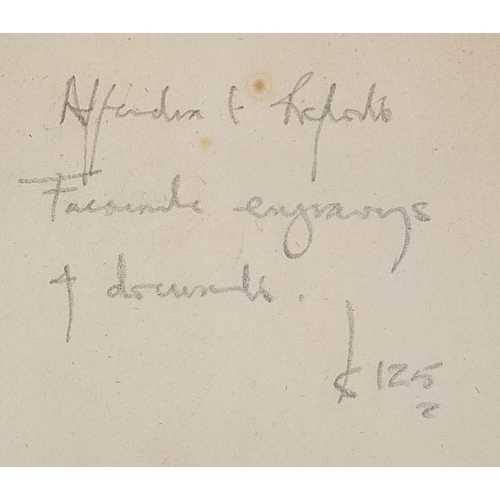 Appendix to Reports
Facsimile engravings
& documents.
£ 125